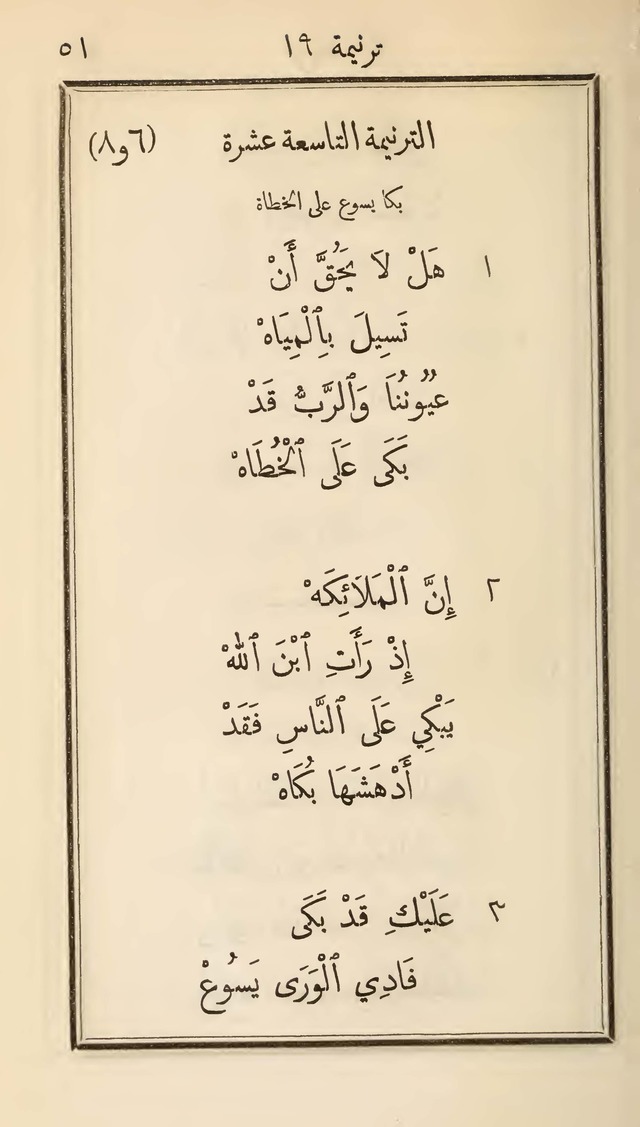 ترنيمة ١٩ ٥١
الترنيمة التاسعة عشرة (٦ و٨)
بكا يسوع على الخطاة
١ هَلْ لَا يَحُقَّ أَنْ
تَسِيلَ بِٱلْمِيَاهْ
عُيُونُنَا وَٱلرَّبُّ قَدْ
بَكَى عَلَى ٱلْخُطَاهْ
٢ إِنَّ ٱلْمَلَائِكَهْ
إِذْ رَأَتِ ٱبْنَ ٱللهْ
يَبْكِي عَلَى ٱلنَّاسِ فَقَدْ
أَدْهَشَهَا بُكَاهْ
٣ عَلَيْكِ قَدْ بَكَى
فَادِي ٱلْوَرَى يَسُوعْ